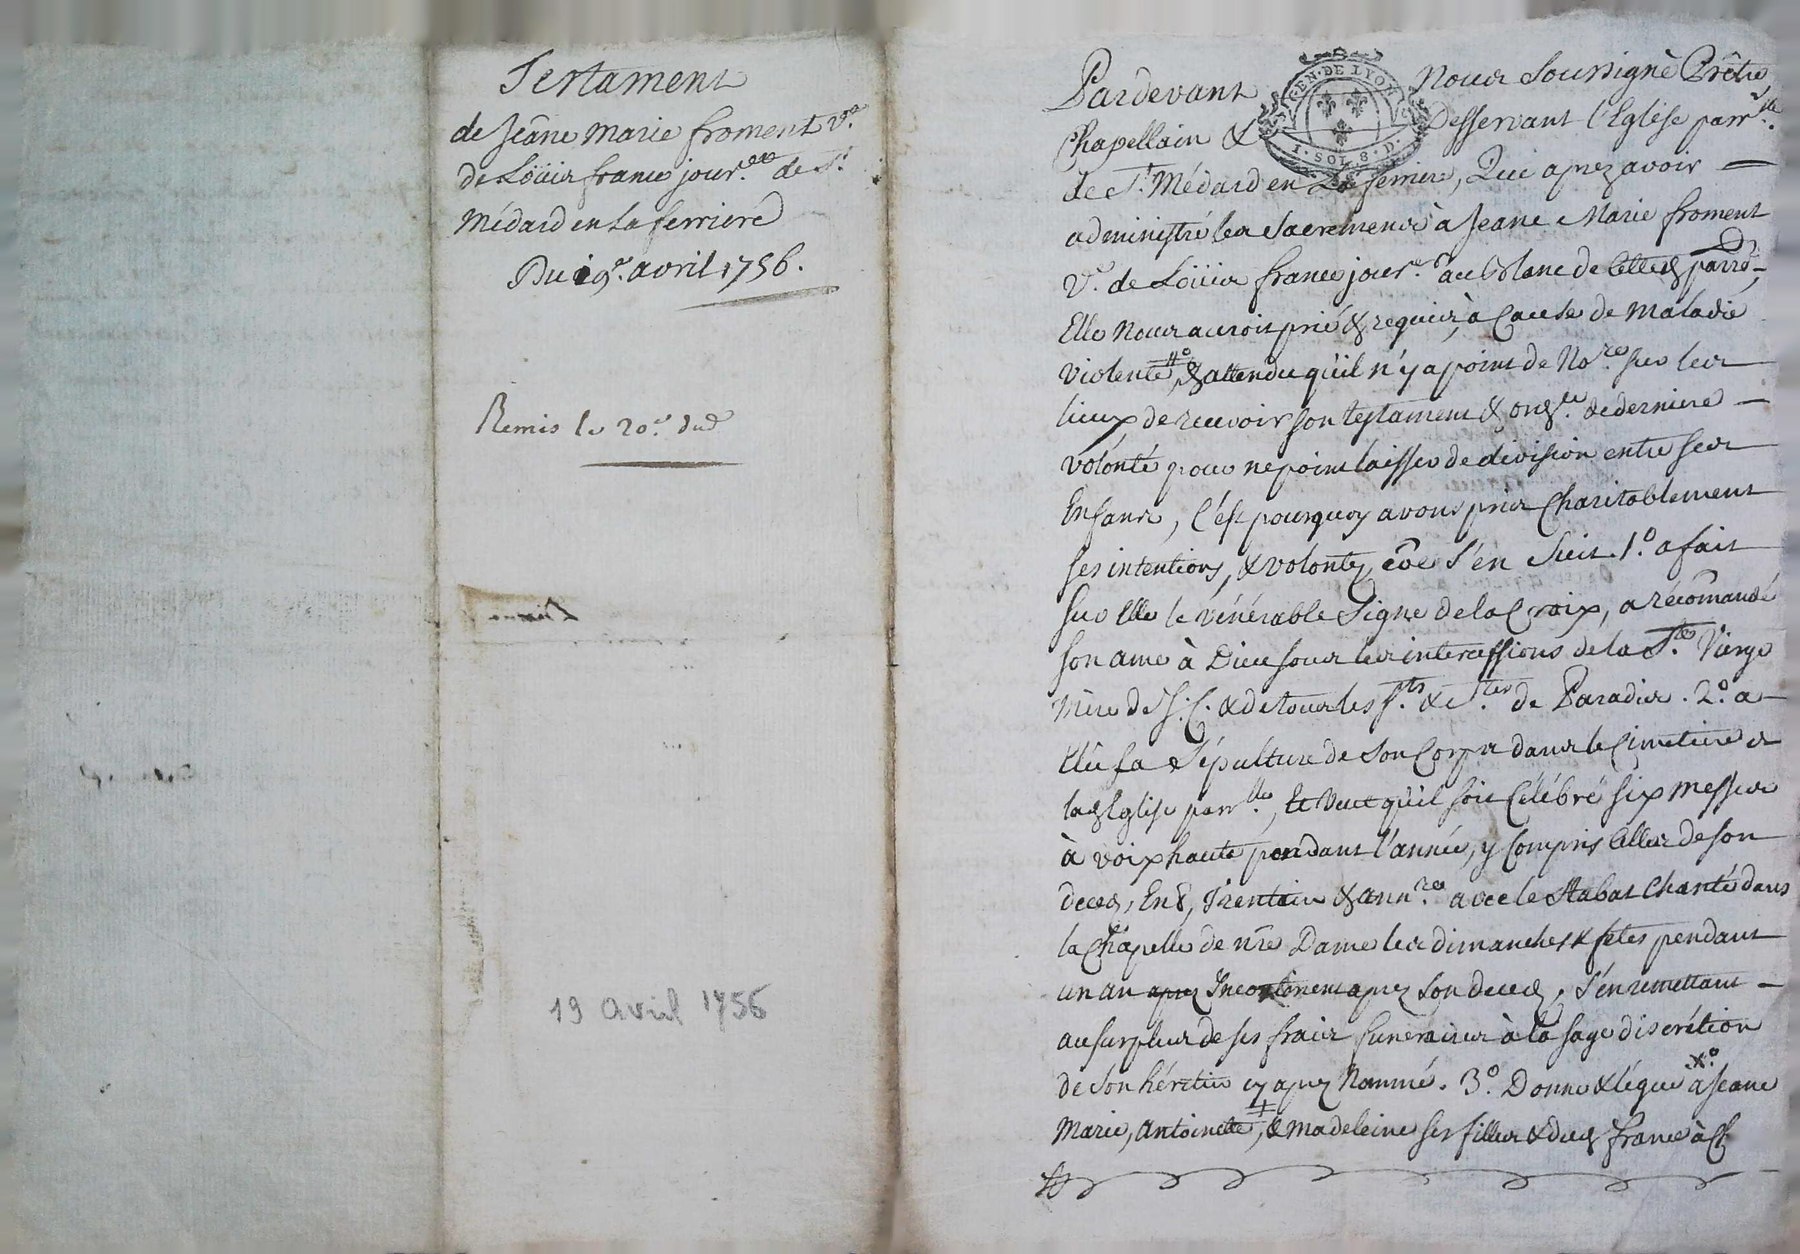 Testament
de Jeâne Marie froment v.e
de Loüis france jour.er de St.
Médard en La ferriere
Du 19.e avril 1756.
Remis le 20.e dud
19 avril 1756
Pardevant Nous Soussigné Prêtre
GEN. DE LYON
1. SOL. 8. D.
Chapellain & Desservant l'Eglise parr.lle
de St. Médard en La ferriere, Qui aprez avoir
administré les Sacremens à Jeane Marie froment
v.e de Loüis france jour.r au blanc de celled. parr.
Elle Nous auroit prié & requis, à Cause de Maladie
violente, & attendu qu'il n'y a point de No.re sur les
lieux de recevoir son testament & ord.ce de derniere
volonté pour ne point laisser de division entre ses
Enfans, C'est pourquoy avons pris Charitablement
ses intentions, & volontez, cõe s'en suit. 1.° a fait
sur Elle le vénérable Signe de la Croix, a recõmandé
son ame à Dieu sous les intercessions de la S.te Vierge
Mère de J. C. & de tous les S.ts & S.tes de Paradis. 2.° a
Elû sa Sépulture de son Corps dans le Cimetiere de
lad. Eglise parr.lle, Et Veut qu'il soit Célébré six Messes
à voix haute pendant l'année, y Compris Celles de son
deced, Ent, Trentain & ann.re avec le Stabat Chanté dans
la Chapelle de nre Dame les dimanches & fêtes pendant
un an aprez Incontinent aprez son deced, S'en remettant
au surplus de ses frais funéraires à la sage discrétion
de son héritier cy aprez Nommé. 3.° Donne & légue à Jeane
Marie, Antoinette, & Madeleine ses filles & dud. france à Ch